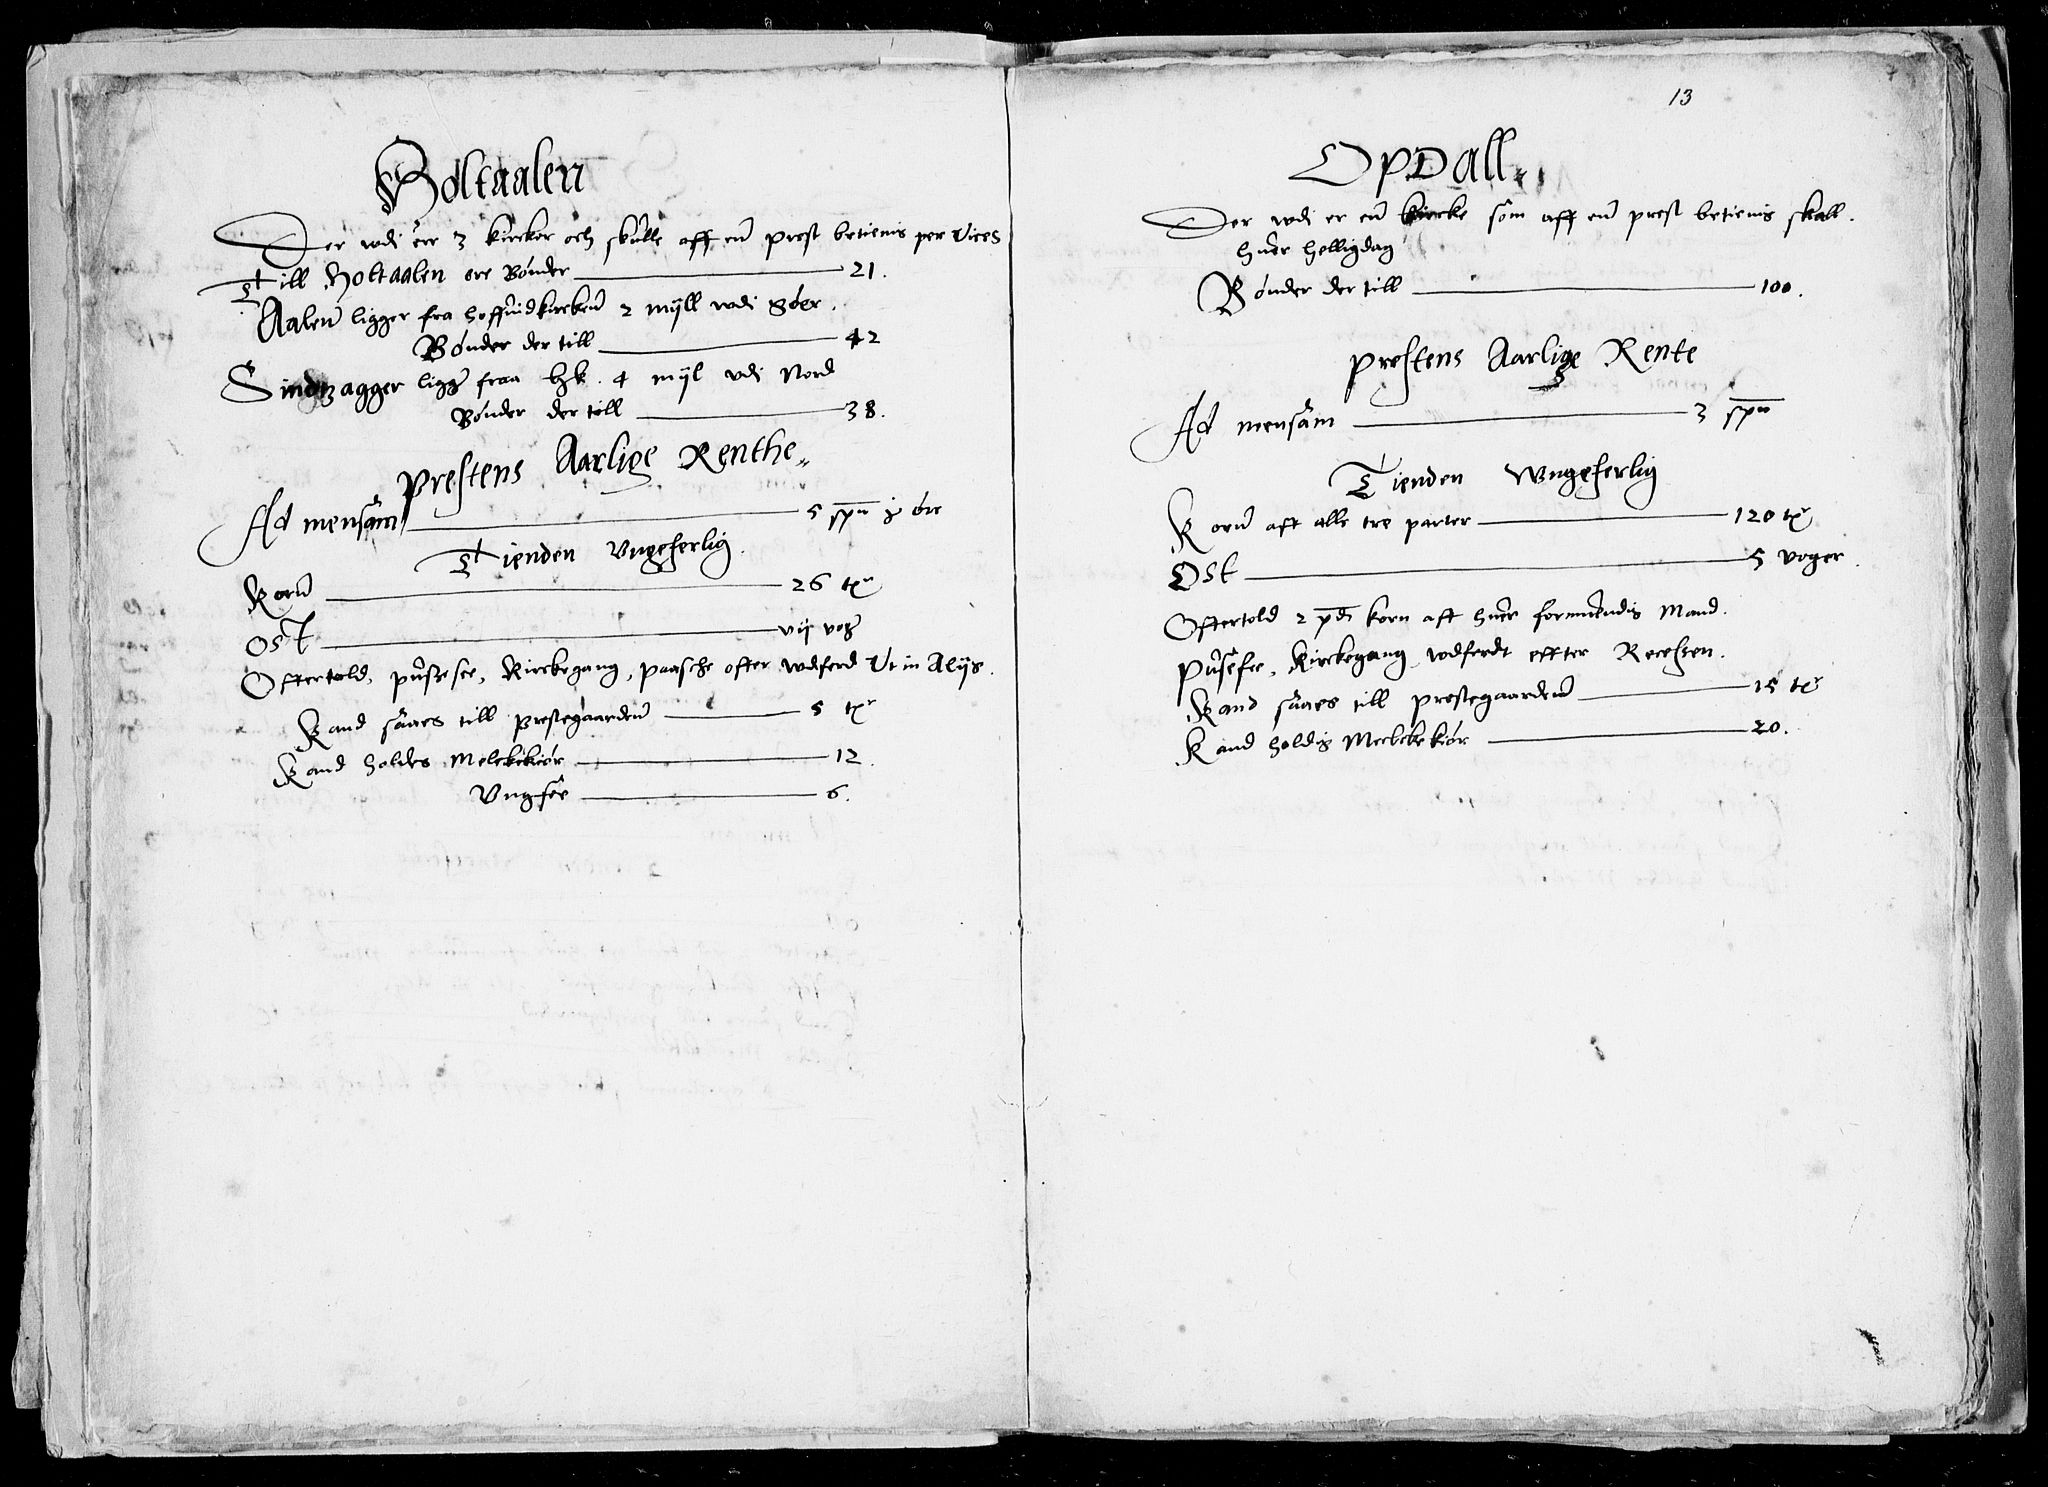 Holtaalen
Der wdi ere 3 kircker och skulle aff en prest betienis per vices
Till Holtaalen ere Bønder 21.
Aalen ligger fra hoffuidkircken 2 mijll wdi Søer.
Bønder der till 42
Sindzagger ligger fraa hk. 4 mijl vdi Nord
Bønder der till 38.
prestens Aarlige Renthe
Ad mensam 5 spn øre
Tienden Vngeferlig.
Korn 26 tr
Ost vij vog
Offertold, pusse fee, Kirckegang, paasche offer, wdferd Vt in Alijs.
Kand saaes till prestegaarden 5 tr
Kand holdes Melckekiør 12.
Vngfee 6.
13
Opdall
Der wdi er en kircke som aff en prest betienis skall.
huer helligdag
Bønder der till 100.
prestens Aarlige Rente
Ad mensam 3 spn
Tienden Wngeferlig
Korn aff alle tre parter 120 tr
Ost 5 voger.
Offertold 2 pd korn aff huer formuendis Mand.
pusefee, Kirckegang, wdferdt effter Recessen.
Kand saaes till prestegaarden 15 tr
Kand holdis Melckekiør 20.